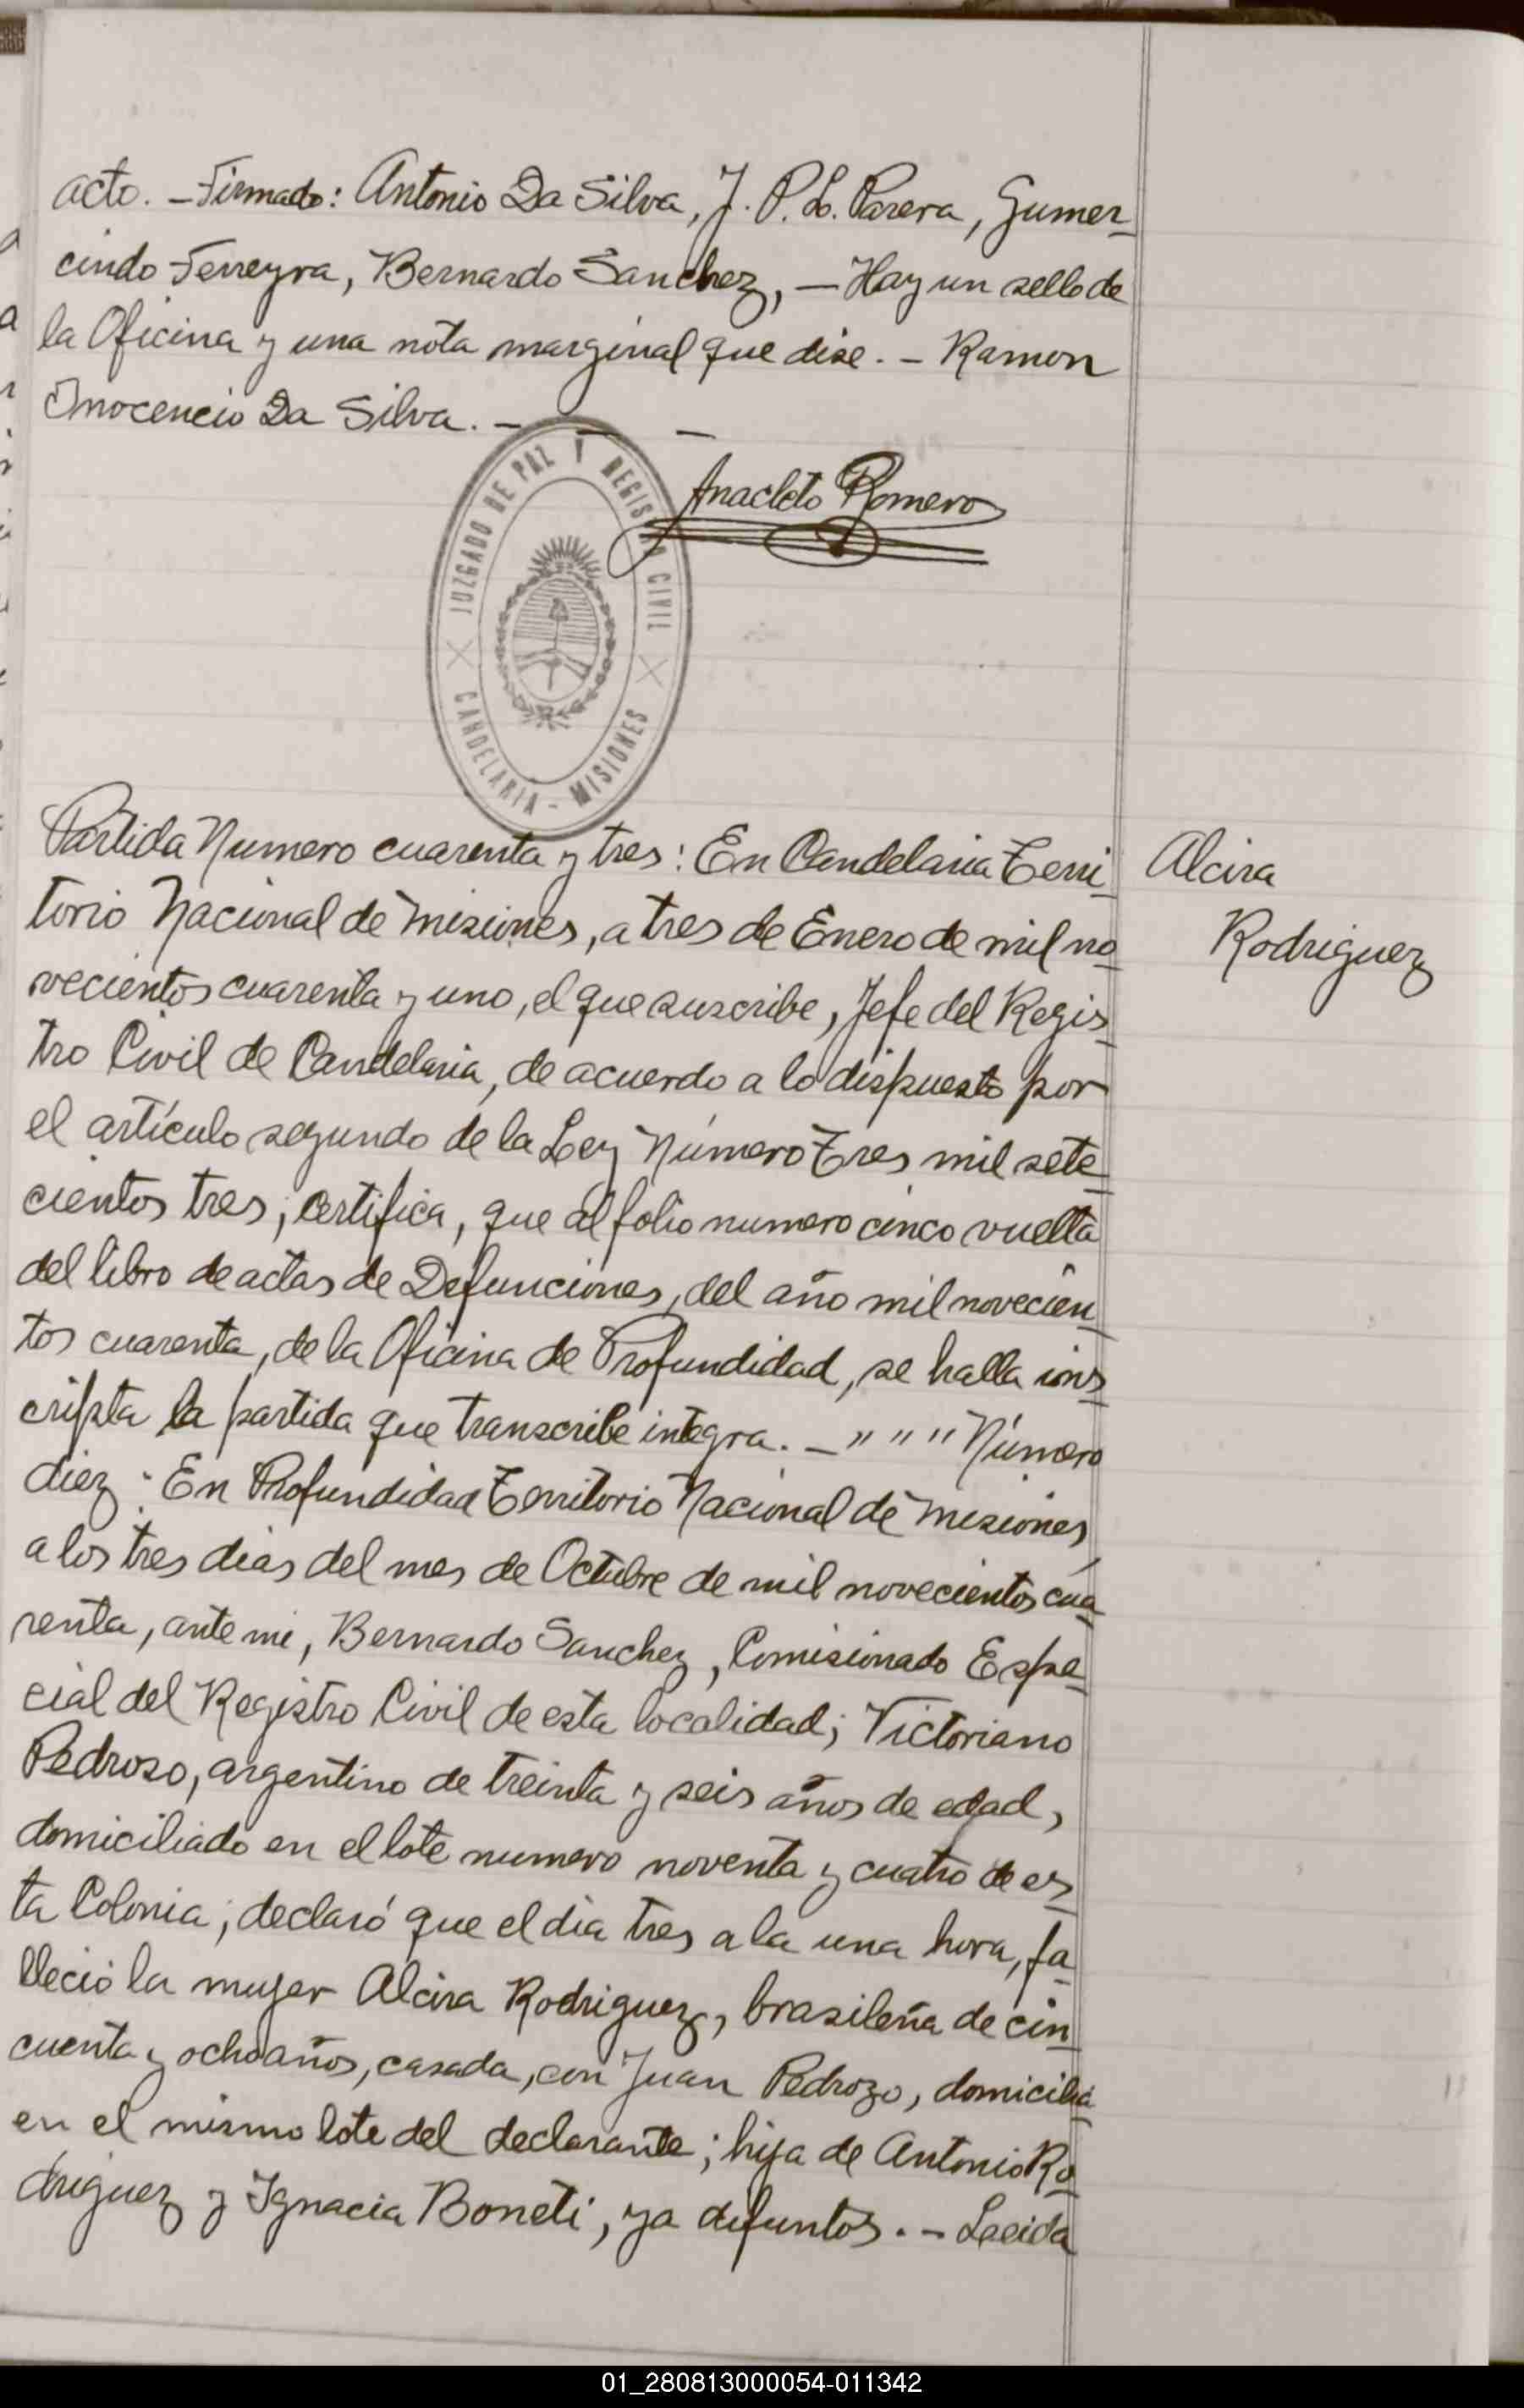 acto. - Firmado: Antonio Da Silva, J. P. L. Parera, Gumer-
cindo Ferreyra, Bernardo Sanchez, - Hay un sello de
la Oficina y una nota marginal que dise. - Ramon
Inocencio Da Silva. - - -
Anacleto Romero
JUZGADO DE PAZ Y REGISTRO CIVIL
CANDELARIA - MISIONES
Partida Numero cuarenta y tres: En Candelaria Terri-
torio Nacional de Misiones, a tres de Enero de mil no-
vecientos cuarenta y uno, el que suscribe, Jefe del Regis-
tro Civil de Candelaria, de acuerdo a lo dispuesto por
el artículo segundo de la Ley Número Tres mil sete-
cientos tres; certifica, que al folio numero cinco vuelta
del libro de actas de Defunciones, del año mil novecien-
tos cuarenta, de la Oficina de Profundidad, se halla ins-
cripta la partida que transcribe integra. - " " " Número
diez: En Profundidad Territorio Nacional de Misiones,
a los tres dias del mes de Octubre de mil novecientos cua-
renta, ante mi, Bernardo Sanchez, Comisionado Espe-
cial del Registro Civil de esta localidad; Victoriano
Pedroso, argentino de treinta y seis años de edad,
domiciliado en el lote numero noventa y cuatro de es-
ta Colonia; declaró que el dia tres a la una hora, fa-
lleció la mujer Alcira Rodriguez, brasileña de cin-
cuenta y ocho años, casada, con Juan Pedrozo, domicilia-
en el mismo lote del declarante; hija de Antonio Ro-
driguez y Ignacia Boneti, ya difuntos. - Leeida
Alcira
Rodriguez
01_280813000054-011342